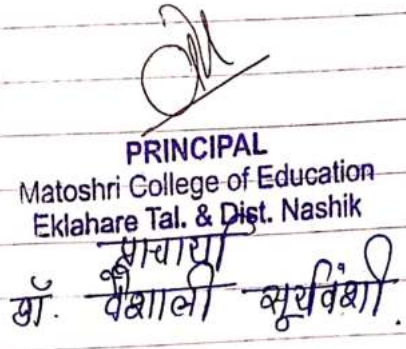 PRINCIPAL
Matoshri College of Education
Eklahare Tal. & Dist. Nashik
प्राचार्या
डॉ. वैशाली सूर्यवंशी.